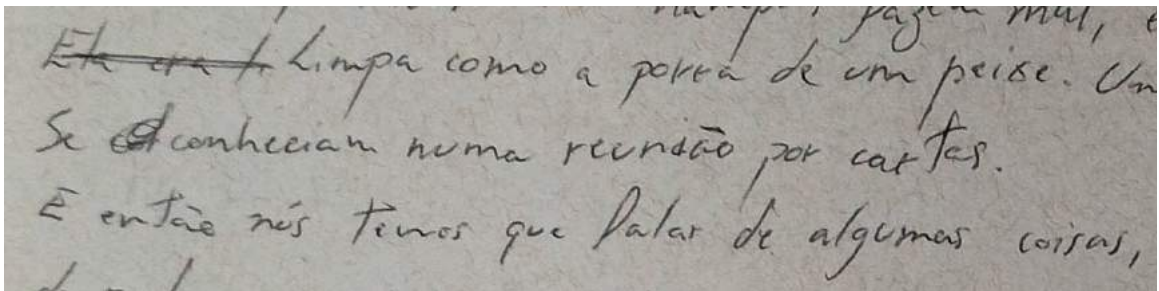 fazem mal,
Ela era l. Limpa como a porra de um peixe. Um
Se conheciam numa reunião por cartas.
E então nós temos que falar de algumas coisas,